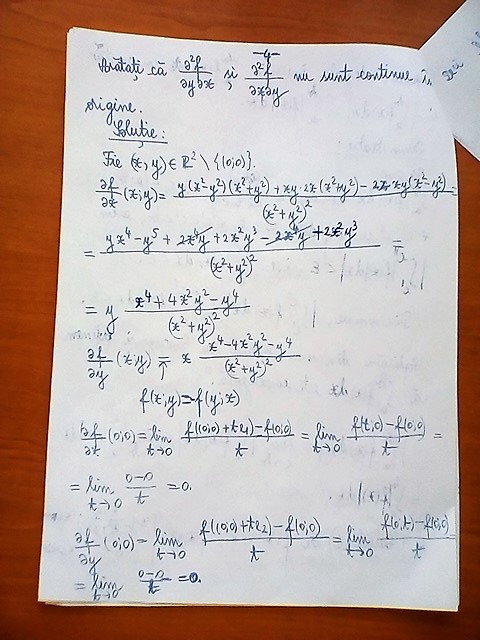 -4-
Arătați că ∂²f/∂y∂x și ∂²f/∂x∂y nu sunt continue în
origine.
Soluție:
Fie (x,y) ∈ ℝ² \ {(0,0)}.
∂f/∂x (x,y) = (y(x²-y²)(x²+y²) + xy·2x(x²+y²) - 2x·xy(x²-y²))/(x²+y²)² =
= (yx⁴ - y⁵ + 2x⁴y + 2x²y³ - 2x⁴y + 2x²y³)/(x²+y²)² =
= y (x⁴ + 4x²y² - y⁴)/(x²+y²)²
∂f/∂y (x,y) = x (x⁴ - 4x²y² - y⁴)/(x²+y²)².
f(x,y) = -f(y,x)
∂f/∂x (0,0) = lim t→0 (f((0,0)+te₁) - f(0,0))/t = lim t→0 (f(t,0) - f(0,0))/t =
= lim t→0 (0-0)/t = 0.
∂f/∂y (0,0) = lim t→0 (f((0,0)+te₂) - f(0,0))/t = lim t→0 (f(0,t) - f(0,0))/t
= lim t→0 (0-0)/t = 0.